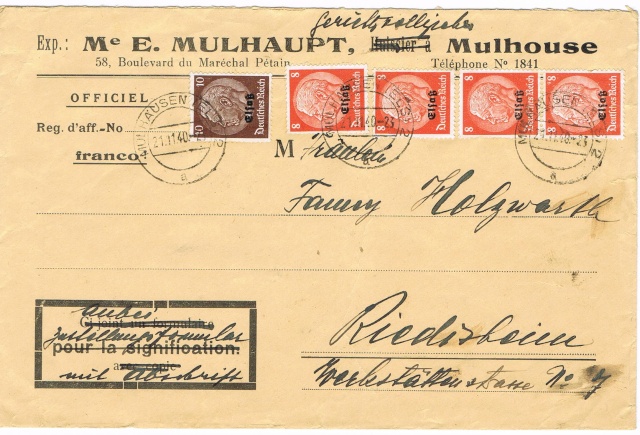 Gerichtsvollzieher
Exp.: Me E. MULHAUPT, Huissier à Mulhouse
58, Boulevard du Maréchal Pétain Téléphone No 1841
OFFICIEL
Reg. d'aff.-No
franco
10 Elsaß Deutsches Reich 10
8 Elsaß Deutsches Reich 8
8 Elsaß Deutsches Reich 8
8 Elsaß Deutsches Reich 8
8 Elsaß Deutsches Reich 8
MÜLHAUSEN (ELS) 2
21.11.40.-23
a
M Fräulein
Fanny Holzwarth
Riedisheim
Werkstättenstrasse No 7
Anbei
Ci joint un formulaire
Zustellungsformular
pour la signification.
mit Abschrift